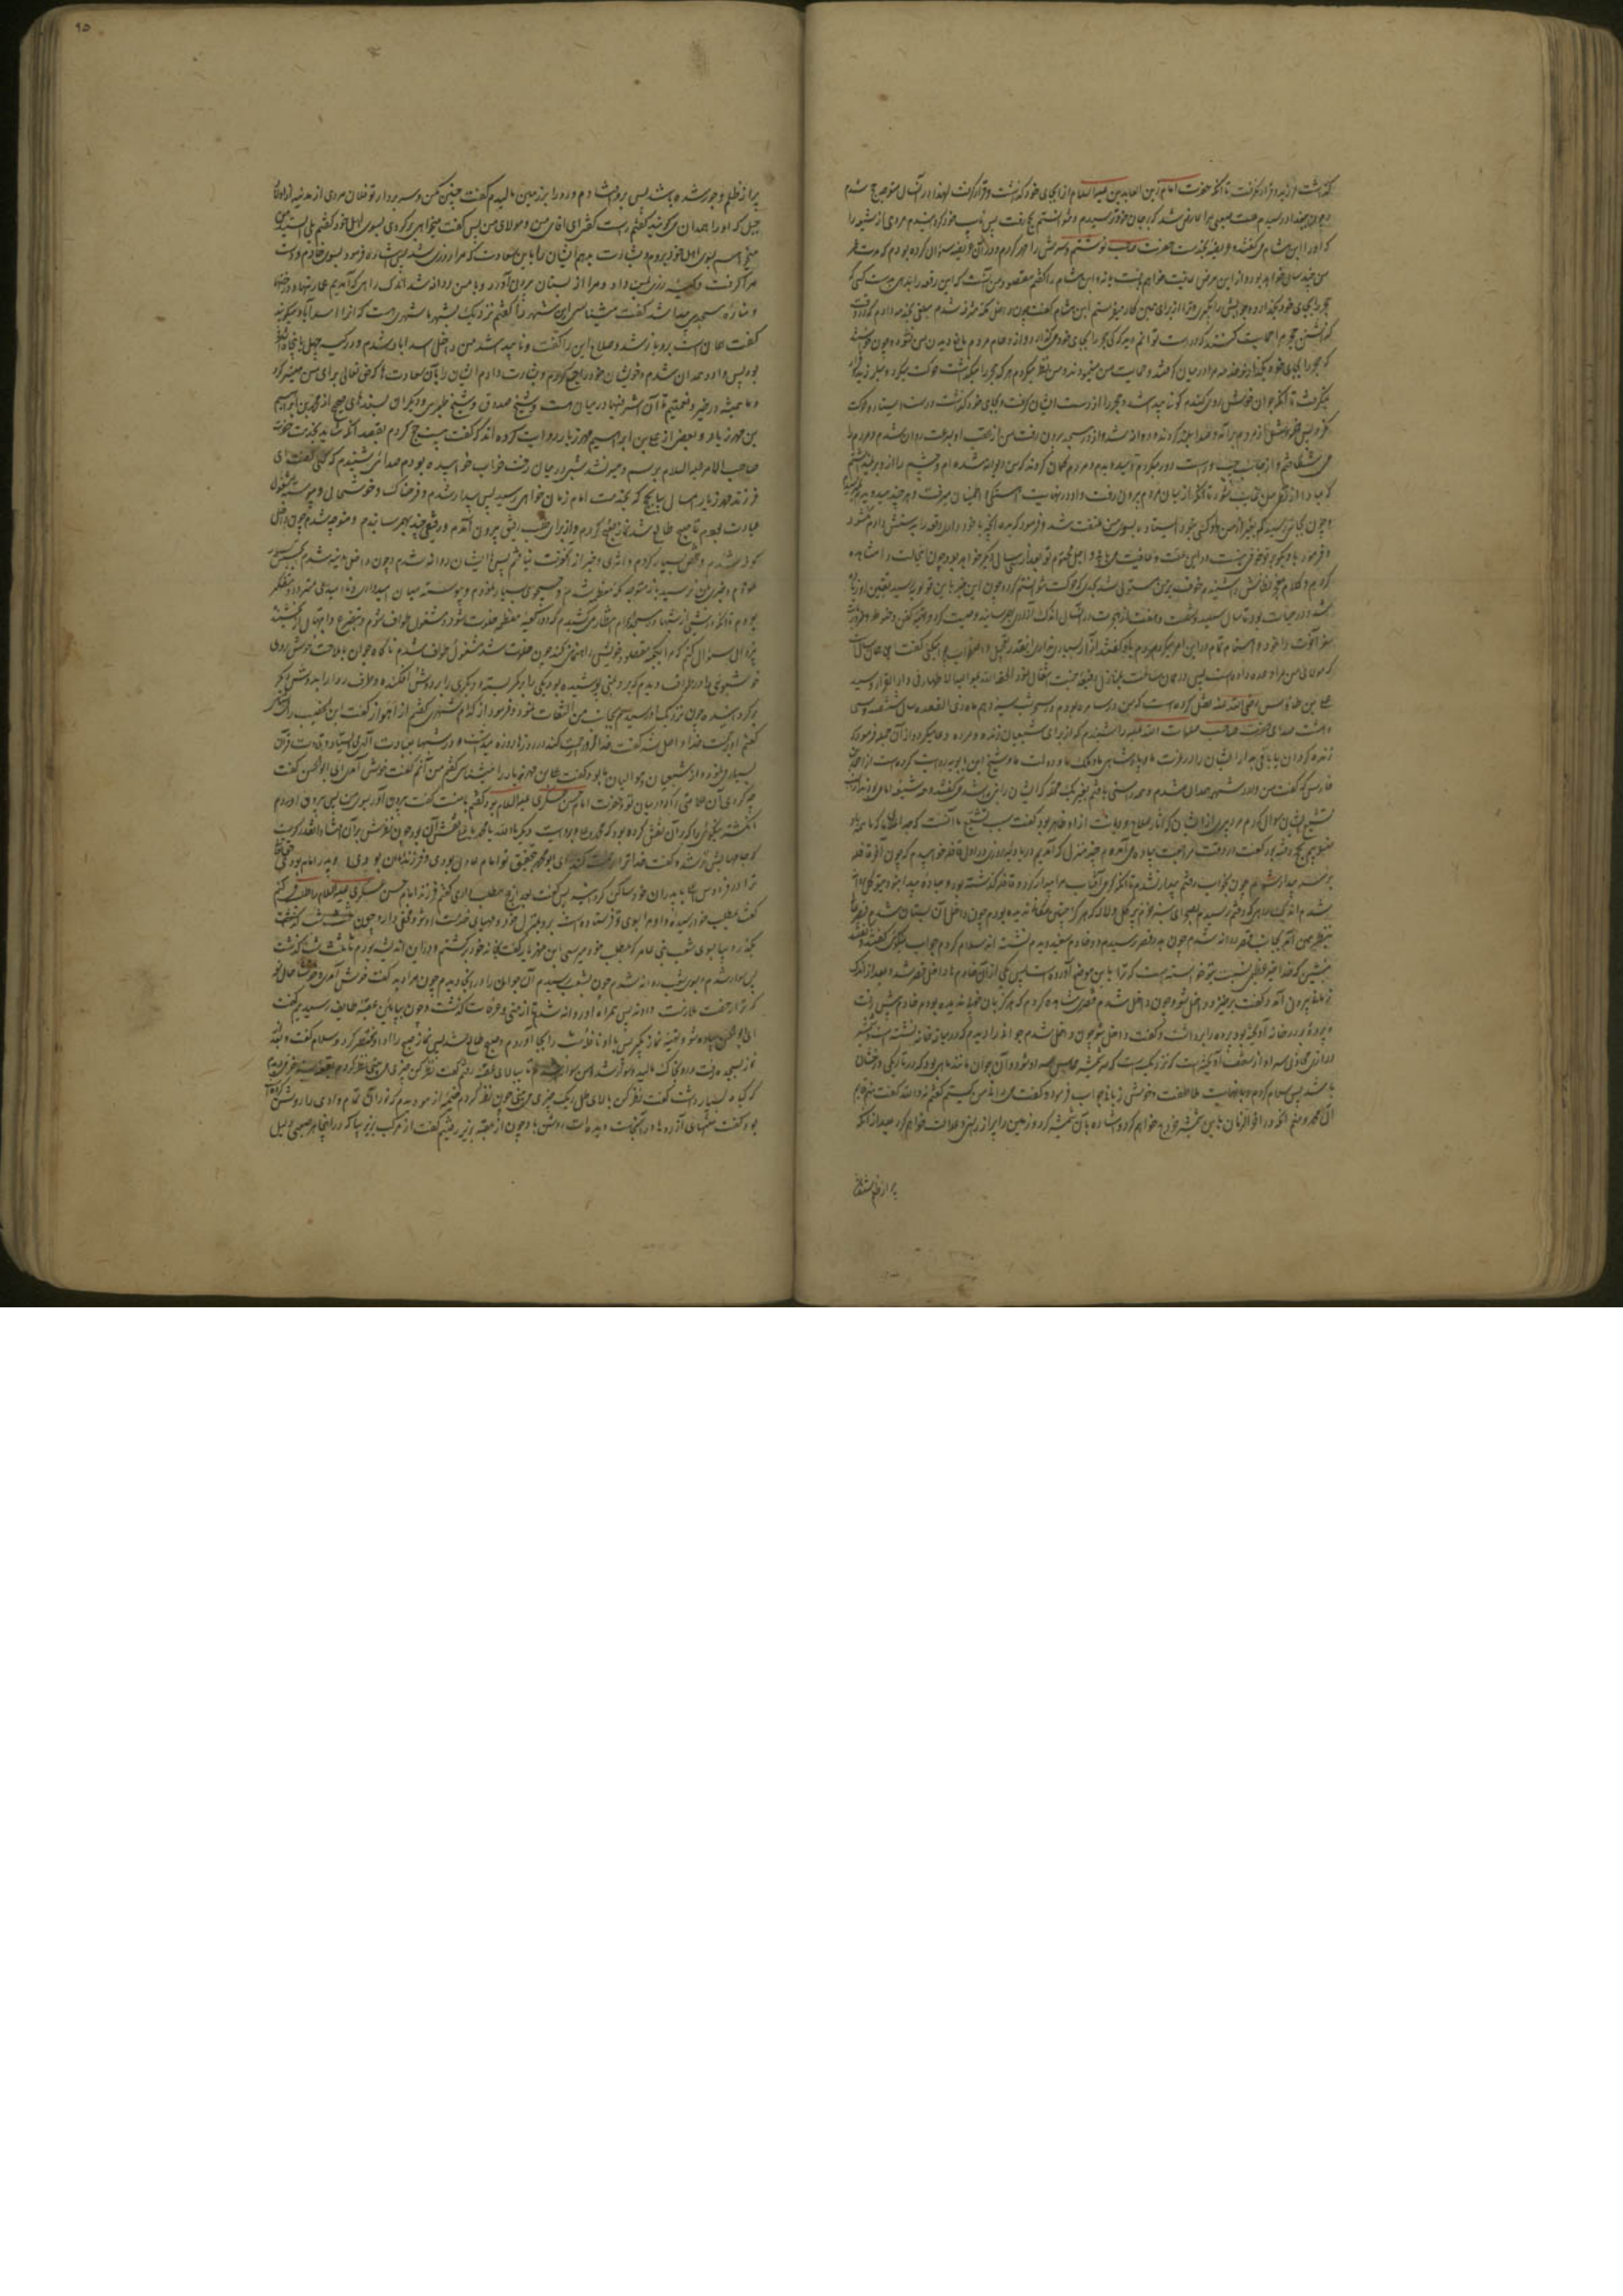 گذاشت لرزید و قرار نگرفت تا آنکه حضرت امام زین العابدین علیه السلام از برای خود گذاشت و قرار گرفت لهذا در آن سال متوجه حج شدم
و چون ببغداد رسیدم علت صعبی مرا عارض شد که بر جان خود ترسیدم و نتوانستم بحج رفت پس نایب خود گردانیدم مردی از شیعه را
که او را ابن هشام می‌گفتند و عریضه بخدمت حضرت صاحب نوشتم و سرش را مهر کردم و در آن عریضه سؤال کرده بودم که مدت عمر
من چند سال خواهد بود و از این مرض عافیت خواهم یافت یا نه و ابن هشام را گفتم مقصود من آنست که این رقعه را بدهی بدست کسی که
حجر را بجای خود میگذارد و جوابش را بگیری و ترا از برای همین کار میفرستم ابن هشام گفت چون داخل مکه مشرفه شدم مبلغی بخدمه دادم که در وقت
گذاشتن حجر مرا حمایت کنند که توانم درست دید که کی حجر را بجای خود می‌گذارد و ازدحام مردم مانع دیدن من نشود و چون خواستند
که حجر را بجای خود بگذارند خدمه مرا در میان گرفتند و حمایت من مینمودند و من نظر میکردم هر که حجر را میگذاشت حرکت میکرد و میلرزید و قرار
نمیگرفت تا آنکه جوان خوش روی گندم گونی پیدا شد و حجر را از دست ایشان گرفت و بجای خود گذاشت و درست ایستاد و حرکت
نکرد پس خروش از مردم برآمد و صدا بلند کردند و روانه شد و از در مسجد بیرون رفت من از عقب او بسرعت روان شدم و مردم را
می شکافتم و از جانب چپ و راست دور میکردم و میدویدم و مردم گمان کردند که من دیوانه شده ام و چشم را از او بر نمیداشتم
که مبادا از نظر من غایب شود تا آنکه از میان مردم بیرون رفت و او در نهایت آهستگی و اطمینان میرفت و هر چند میدویدم باو نمیرسیدم
و چون بجائی رسید که بغیر از من و او کسی نبود ایستاد و بسوی من ملتفت شد و فرمود که بده آنچه با خود داری رقعه را بدستش دادم نگشود
و فرمود باو بگو بر تو خوفی نیست در این علت و عافیت می یابی و اجل محتوم تو بعد از سی سال دیگر خواهد بود چون این حالت را مشاهده
کردم و کلام معجز نظامش را شنیدم خوف بر من مستولی شد بحدی که حرکت نتوانستم کرد و چون این خبر بابن قولویه رسید یقین او زیاده
شد و در حیات بود تا سال سیصد و شصت و هفت از هجرت در آن سال اندک آزاری بهم رسانید وصیت کرد و تهیه کفن و حنوط و ضروریات
سفر آخرت را گرفت و اهتمام تمام در این امور میکرد مردم باو گفتند آزار بسیاری نداری اینقدر تعجیل و اضطراب چرا میکنی گفت این همان سال است
که مولای من مرا وعده داده است پس در همان علت بمنازل رفیعه جنت انتقال نمود الحقه الله علیه بموالیه الاطهار فی دار القرار و سید
علی بن طاوس رضی الله عنه نقل کرده است که من در سامره بودم در سحر شب سیزدهم ماه ذی القعده سال ششصد و سی
و هشت صدای حضرت صاحب صلوات الله علیه را شنیدم که از برای شیعیان زنده و مرده دعا میکرد و از آن جمله فرمود که
زنده گردان یا باقی بدار ایشان را در عزت ما و پادشاهی ما و ملک ما و دولت ما و شیخ ابن بابویه روایت کرده است از احمد بن
فارس که گفت من وارد شهر همدان شدم و همه را سنی یافتم بغیر یک محله که ایشان را بنی راشد می گفتند و همه شیعه امامی بودند از سبب
تشیع ایشان سؤال کردم مرد پیری از ایشان که آثار صلاح و دیانت از او ظاهر بود گفت سبب تشیع ما آنست که جد اعلای ما که ما همه باو
منسوبیم بحج رفته بود گفت در وقت مراجعت پیاده می‌آمدم چند منزل که آمدیم در بادیه روزی در اول قافله خوابیدم که چون آخر قافله
برسد بیدار شوم چون بخواب رفتم بیدار نشدم تا آنکه گرمی آفتاب مرا بیدار کرد و قافله گذشته بود و جاده پیدا نبود بتوکل روانه
شدم اندک راهی که رفتم رسیدم بصحرای سبز خرم پر گل و لاله که هرگز چنین مکانی ندیده بودم چون داخل آن بستان شدم قصر عالی
بنظر من آمد بجانب قصر روانه شدم چون بدر قصر رسیدم دو خادم سفید دیدم نشسته اند سلام کردم جواب نیکوئی گفتند و گفتند
بنشین که خدا خیر عظیمی نسبت بتو خواسته است که ترا باین موضع آورده است پس یکی از آن خادم ها داخل قصر شد و بعد از اندک
زمانی بیرون آمد و گفت برخیز و داخل شو چون داخل شدم قصری مشاهده کردم که هرگز بآن خوبی ندیده بودم خادم پیش رفت
و پرده بر در خانه آویخته بود پرده را برداشت و گفت داخل شو چون داخل شدم جوانی را دیدم که در میان خانه نشسته است و شمشیر
درازی محاذی سر او از سقف آویخته است که نزدیک است که سر شمشیر مماس سر او شود و آن جوان مانند ماهی بود که در تاریکی درخشان
باشد پس سلام کردم و با نهایت ملاطفت و خوش زبانی جواب فرمود و گفت میدانی من کیستم گفتم نه والله گفت منم قایم
آل محمد و منم آنکه در آخر الزمان باین شمشیر خروج خواهم کرد و اشاره بآن شمشیر کرد و زمین را پر از راستی و عدالت خواهم کرد بعد از آنکه
پر از ظلم شده
۹۵
پر از ظلم و جور شده باشد پس بر رو افتادم و رو را بر زمین مالیدم گفت چنین مکن و سر بردار تو فلان مردی از مدینه از بلاد
جبل که او را همدان می‌گویند گفتم راست گفتی ای آقای من و مولای من پس گفت میخواهی برگردی بسوی اهل خود گفتم بلی ای سید من
میخواهم بسوی اهل خود بروم و بشارت بدهم ایشان را باین سعادت که مرا روزی شد پس اشاره فرمود بسوی خادم و دست
مرا گرفت و کیسه زری بمن داد و مرا از بستان بیرون آورد و با من روانه شد اندک راهی که آمدیم عمارتها و درختها
و مناره مسجدی پیدا شد گفت میشناسی این شهر را گفتم نزدیک بشهر ما شهری هست که آنرا اسدآباد میگویند
گفت همان است برو با رشد و صلاح این را گفت و ناپیدا شد من داخل اسدآباد شدم و در کیسه چهل یا پنجاه اشرفی
بود پس وارد همدان شدم و خویشان خود را جمع کردم و بشارت دادم ایشان را بآن سعادت ها که حق تعالی برای من میسر کرد
و ما همیشه در خیر و نعمتیم تا آن اشرفیها در میان ماست و شیخ صدوق و شیخ طوسی و دیگران بسندهای صحیح از محمد بن ابراهیم
بن مهزیار و بعضی از علی بن ابراهیم مهزیار روایت کرده اند که گفت بیست حج کردم بقصد آنکه شاید بخدمت حضرت
صاحب الامر علیه السلام برسم و میسر نشد شبی در میان رخت خواب خوابیده بودم صدائی شنیدم که کسی گفت ای
فرزند مهزیار امسال بیا بحج که بخدمت امام زمان خواهی رسید پس بیدار شدم و فرحناک و خوشحال و پیوسته مشغول
عبادت بودم تا صبح طالع شد نماز صبح کردم و از برای طلب رفیق بیرون آمدم و رفیقی چند بهم رسانیدم و متوجه شدم چون داخل
کوفه شدم تجسس بسیار کردم و اثری و خبری از آنحضرت نیافتم پس با ایشان روانه شدم و چون داخل مدینه شدم تجسس بسیار
نمودم و خبری بمن نرسید باز متوجه مکه معظمه شدم و جستجوی بسیار نمودم و پیوسته میان امیدواری و ناامیدی متردد و متفکر
بودم تا آنکه در شبی از شبها در مسجد الحرام انتظار می‌کشیدم که دور کعبه معظمه خلوت شود و مشغول طواف شوم و بتضرع و ابتهال از بخشنده
بی‌زوال سؤال کنم که مرا بکعبه مقصود خویش راهنمائی کند چون خلوت شد مشغول طواف شدم ناگاه جوان با ملاحت خوش روی
خوشبوئی را در طواف دیدم که دو برد یمنی پوشیده بود یکی را بر کمر بسته و دیگری را بر دوش افکنده و طرف ردا را بر دوش دیگر
برگردانیده چون نزدیک او رسیدم بجانب من التفات نمود و فرمود از کدام شهری گفتم از اهواز گفت ابن خضیب را می‌شناسی
گفتم او برحمت خدا واصل شد گفت خدا او را رحمت کند در روزها روزه میداشت و در شبها بعبادت الهی می‌ایستاد و تلاوت قرآن
بسیار می‌نمود و از شیعیان و موالیان ما بود گفت علی بن مهزیار را میشناسی گفتم من آنم گفت خوش آمدی ای ابوالحسن گفت
چه کردی آن علامتی را که در میان تو و حضرت امام حسن عسکری علیه السلام بود گفتم با منست گفت بیرون آور بسوی من پس بیرون آوردم
انگشتر نیکوئی را که در آن نقش کرده بود که محمد و علی و بروایت دیگر یا الله یا محمد یا علی نقش آن بود چون نظرش بر آن افتاد آنقدر گریست
که جامهایش تر شد و گفت خدا ترا رحمت کند ای ابو محمد بتحقیق تو امام عادل بودی و فرزند امامان بودی و پدر امام بودی حق تعالی
ترا در فردوس اعلی با پدران خود ساکن گردانید پس گفت بعد از حج مطلب داری گفتم فرزند امام حسن عسکری علیه السلام را طلب می کنم
گفت بمطلب خود رسیده و او مرا بسوی تو فرستاده است برو بمنزل خود و مهیای سفر شو و مخفی دار و چون ثلث شب گذشت
بیا بسوی شعب بنی عامر که بمطلب خود میرسی ابن مهزیار گفت بخانه خود برگشتم و در این اندیشه بودم تا ثلث شب گذشت
پس سوار شدم و بسوی شعب روانه شدم چون بشعب رسیدم آن جوان را در آنجا دیدم چون مرا دید گفت خوش آمدی و خوشا حال تو
که ترا رخصت ملازمت دادند پس همراه او روانه شدم تا از منی و عرفات گذشت و چون بپائین عقبه طایف رسیدیم گفت
ای ابوالحسن پیاده شو و تهیه نماز بگیر پس با او نافله شب را بجا آوردم و صبح طالع شد پس نماز صبح را ادا و مختصر کرد و سلام گفت و بعد
نماز بسجده رفت و رو بخاک مالید و سوار شد و من سوار شدم تا ببالای عقبه رفتیم گفت نظر کن چیزی می بینی نظر کردم بقعه سبز خرمی دیدم
که گیاه بسیار داشت گفت نظر کن ببالای تل ریگ چیزی می بینی چون نظر کردم خیمه از مو دیدم که نور آن تمام وادی را روشن کرده
بود گفت منتهای آرزوها در آنجاست دیده ات روشن باد چون از عقبه بزیر رفتیم گفت از مرکب بزیر بیا که در اینجا هر صعبی ذلیل